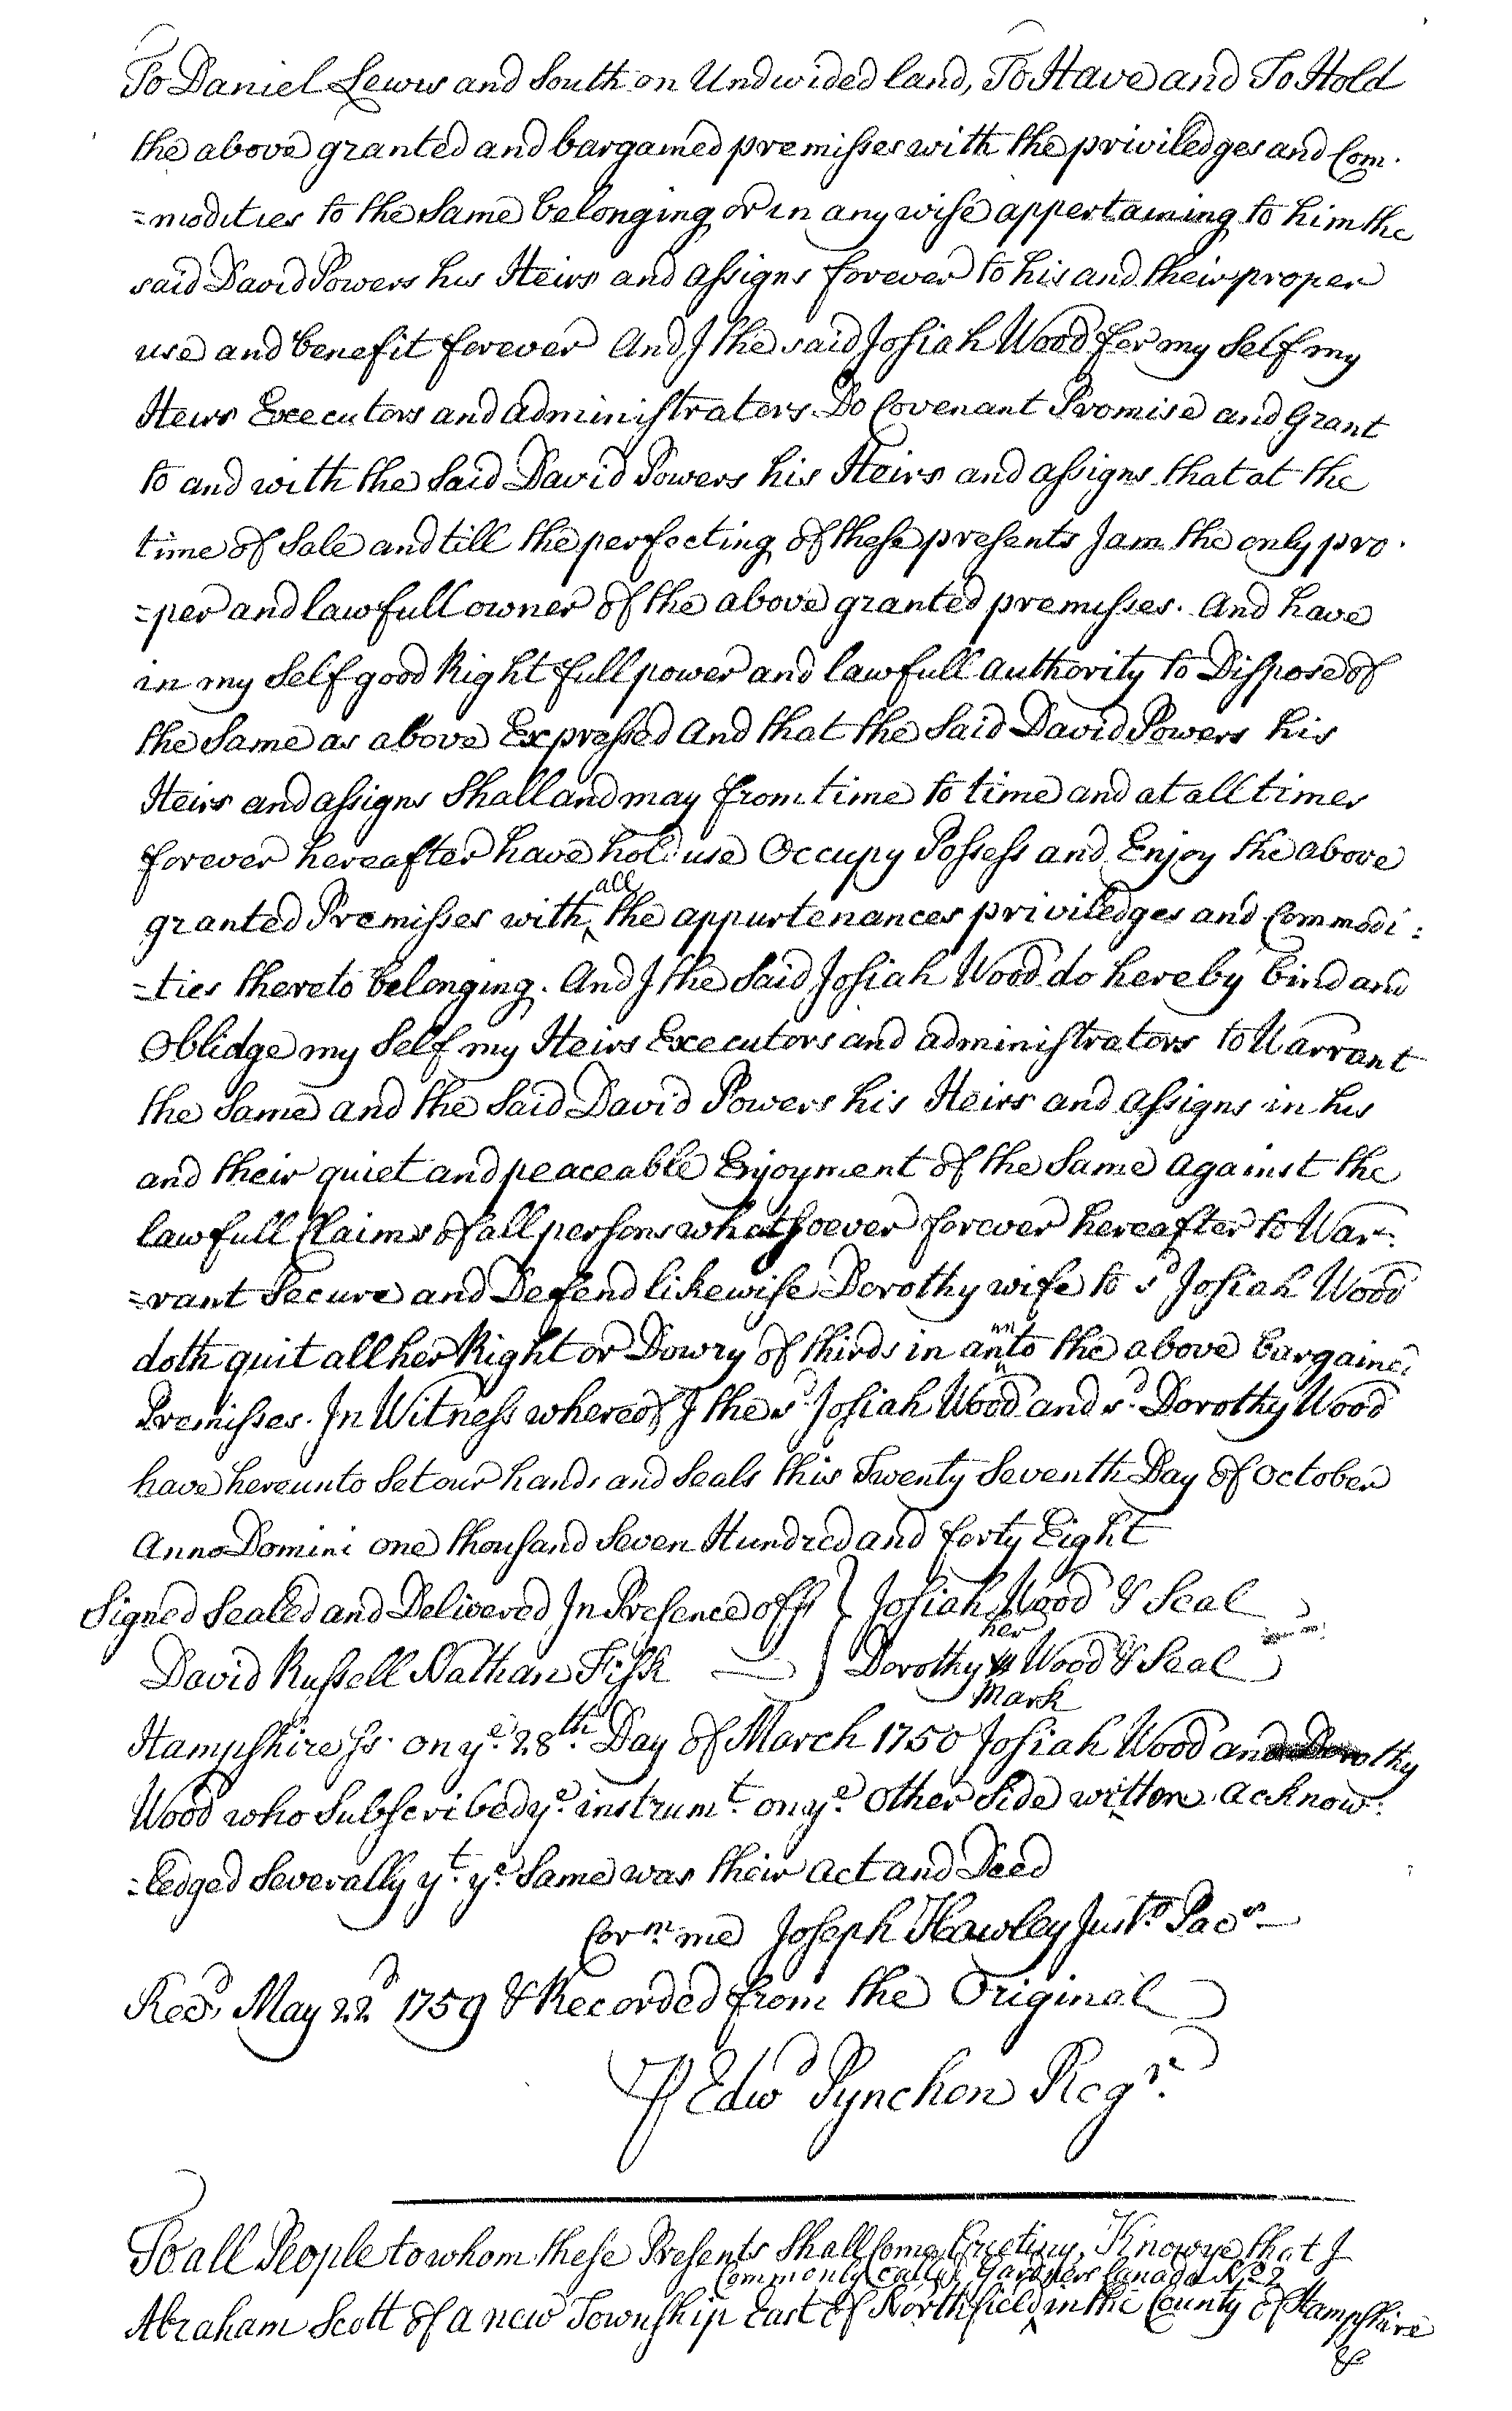 To Daniel Lewis and South on Undivided land, To Have and To Hold
the above granted and bargained premisses with the priviledges and Com.
=modities to the Same belonging or in any wise appertaining to him the
said David Powers his Heirs and assigns forever to his and their proper
use and benefit forever And I the said Josiah Wood for my Self my
Heirs Executors and administrators Do Covenant Promise and Grant
to and with the Said David Powers his Heirs and assigns that at the
time of Sale and till the perfecting of these presents I am the only pro.
=per and lawfull owner of the above granted premisses. And have
in my Self good Right full power and lawfull authority to Dispose of
the Same as above Expressed And that the Said David Powers his
Heirs and assigns Shall and may from time to time and at all times
forever hereafter have hold use Occupy Possess and Enjoy the above
granted Premisses with ^all the appurtenances priviledges and Commodi:
=ties thereto belonging. And I the Said Josiah Wood do hereby bind and
Oblidge my Self my Heirs Executors and administrators to Warrant
the Same and the Said David Powers his Heirs and assigns in his
and their quiet and peaceable Enjoyment of the Same against the
lawfull Claims of all persons whatsoever forever hereafter to War:
=rant Secure and Defend likewise Dorothy wife to sd Josiah Wood
doth quit all her Right or Dowry of thirds in an unto the above bargained
Premisses. In Witness whereof I the sd. Josiah Wood and sd. Dorothy Wood
have hereunto Set our hands and Seals this Twenty Seventh Day of October
Anno Domini one thousand Seven Hundred and forty Eight
Signed Sealed and Delivered In Presence off } Josiah Wood & Seal
David Russell Nathan Fisk } Dorothy her mark Wood & Seal
Hampshire ss. on ye. 28th. Day of March 1750 Josiah Wood and Dorothy
Wood who Subscribed ye. instrumt. on ye. Other Side written acknow:
=ledged Severally yt. ye. Same was their act and Deed
Corm. me Joseph Hawley Justo Pacs
Recd. May 22d 1759 & Recorded from the Original
P Edwd Pynchon Regr.
To all People to whom these Presents Shall Come Greeting, Know ye that I
Commonly called Gardners Canada No 2
Abraham Scott of a new Township East of Northfield ^ in the County of Hampshire
&